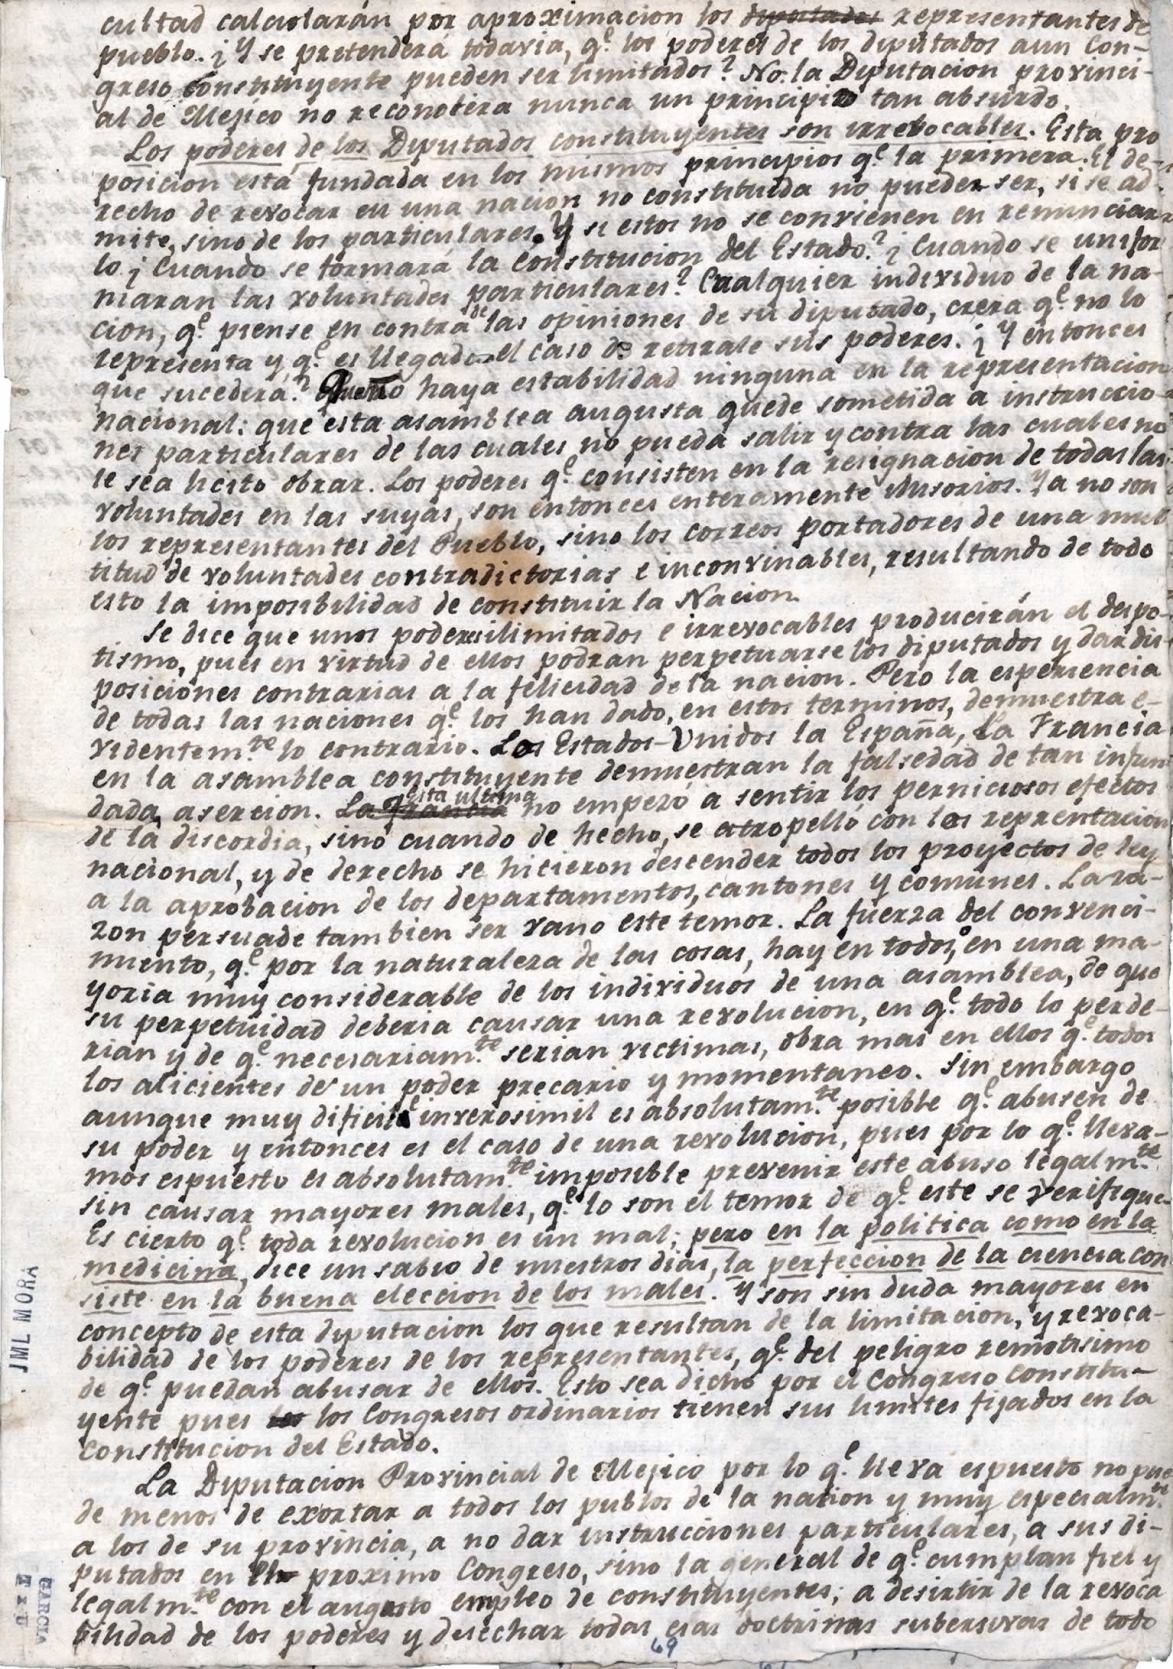 cultad calcularán por aproximacion los diputados representantes de
pueblo. ¿Y se pretenderá todavia, q.e los poderes de los diputados aun Con-
greso constituyente pueden ser limitados? No: la Diputacion provinci-
al de Mejico no reconocera nunca un principio tan absurdo.
Los poderes de los Diputados constituyentes son irrevocables. Esta pro
posicion está fundada en los mismos principios q.e la primera. El de-
recho de revocar en una nacion no constituida no pueder ser, si se ad
mite, sino de los particulares. Y si estos no se convienen en renunciar
lo ¿Cuando se formará la constitucion del Estado? ¿Cuando se unifor
maran las voluntades particulares? Cualquier individuo de la na-
cion, q.e piense en contra de las opiniones de su diputado, crera q.e no lo
representa y q.e es llegado el caso de retirale sus poderes. ¿Y entonces
que sucederá? Que no haya estabilidad ninguna en la representacion
nacional: que esta asamblea augusta quede sometida a instruccio-
nes particulares de las cuales no pueda salir y contra las cuales no
le sea licito obrar. Los poderes q.e consisten en la resignacion de todas las
voluntades en las suyas, son entonces enteramente ilusorios. Ya no son
los representantes del Pueblo, sino los correos portadores de una mul
titud de voluntades contradictorias e inconvinables, resultando de todo
esto la imposibilidad de constituir la Nacion.
Se dice que unos poderes ilimitados e irrevocables producirán el despo-
tismo, pues en virtud de ellos podran perpetuarse los diputados y dar dis-
posiciones contrarias a la felicidad de la nacion. Pero la esperiencia
de todas las naciones q.e los han dado, en estos terminos, demuestra e-
videntem.te lo contrario. Los Estados-Unidos la España, La Francia
en la asamblea constituyente demuestran la falsedad de tan infun
dada asercion. La Francia esta ultima no empezó a sentir los perniciosos efectos
de la discordia, sino cuando de hecho, se atropelló con los reprentacion
nacional, y de derecho se hicieron descender todos los proyectos de ley
a la aprobacion de los departamentos, cantones y comunes. La ra-
zon persuade tambien ser vano este temor. La fuerza del convenci-
miento, q.e por la naturaleza de las cosas, hay en todos, o en una ma-
yoria muy considerable de los individuos de una asamblea, de que
su perpetuidad deberia causar una revolucion, en q.e todo lo perde-
rian y de q.e necesariam.te serian victimas, obra mas en ellos q.e todos
los alicientes de un poder precario y momentaneo. Sin embargo
aunque muy dificil e inverosimil es absolutam.te posible q.e abusen de
su poder y entonces es el caso de una revolucion, pues por lo q.e lleva-
mos espuesto es absolutam.te imposible prevenir este abuso legalm.te
sin causar mayores males, q.e lo son el temor de q.e este se verifique.
Es cierto q.e toda revolucion es un mal; pero en la politica como en la
medicina, dice un sabio de nuestros dias, la perfeccion de la ciencia con
siste en la buena eleccion de los males. Y son sin duda mayores en
concepto de esta diputacion los que resultan de la limitacion, y revoca-
bilidad de los poderes de los representantes, q.e del peligro remotisimo
de q.e puedan abusar de ellos. Esto sea dicho por el Congreso Constitu-
yente pues los los Congresos ordinarios tienen sus limites fijados en la
Constitucion del Estado.
La Diputacion Provincial de Mejico por lo q.e lleva espuesto no pue
de menos de exortar a todos los publos de la nacion y muy especialm.te
a los de su provincia, a no dar instrucciones particulares, a sus di-
putados en proximo Congreso, sino la general de q.e cumplan fiel y
legalm.te con el augusto empleo de constituyentes; a desistir de la revoca
bilidad de los poderes y desechar todas esas doctrinas subersivas de todo
69
JML MORA
GARCIA